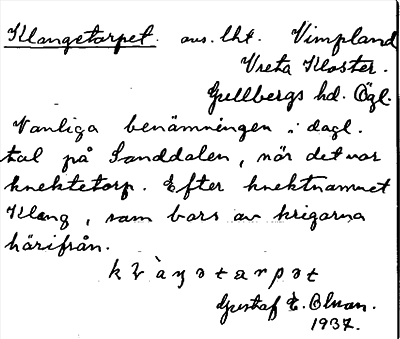 Klangetorpet. avs. lht. Vimpland
Vreta Kloster.
Gullbergs hd. Ögl.
Vanliga benämningen i dagl.
tal på Sanddalen, när det var
knektetorp. Efter knektnamnet
Klang, som bars av krigarna
härifrån.
Gustaf E. Olsson.
1937.